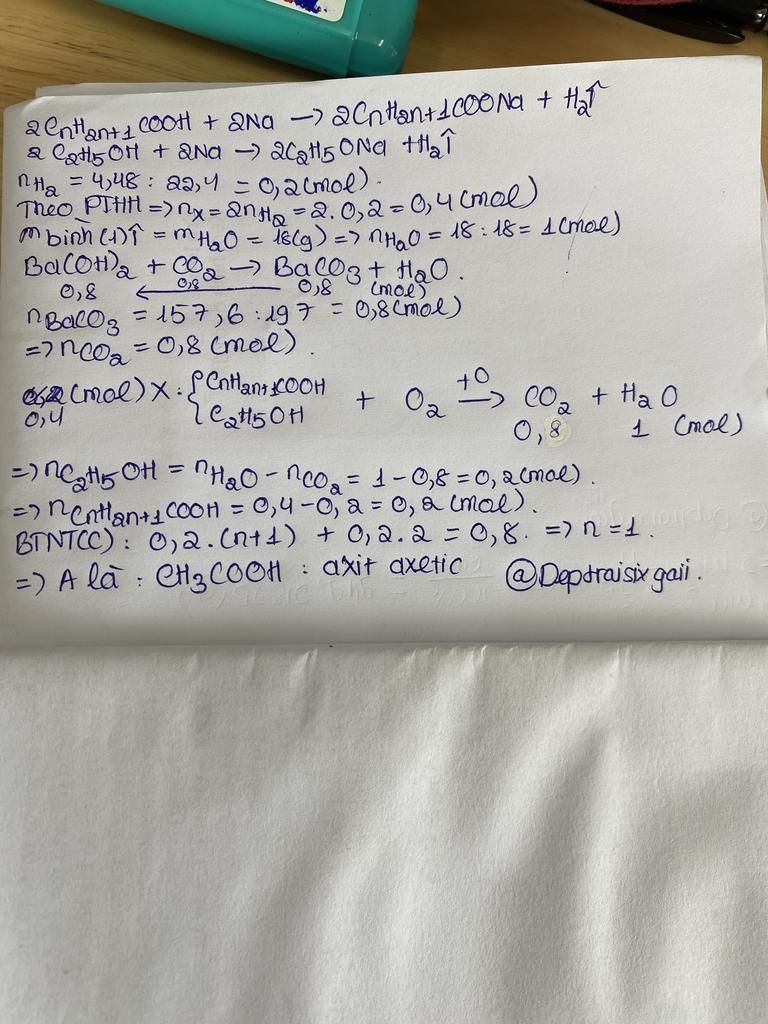 2CnH2n+1COOH + 2Na → 2CnH2n+1COONa + H2↑
2C2H5OH + 2Na → 2C2H5ONa + H2↑
nH2 = 4,48 : 22,4 = 0,2 (mol).
Theo PTHH => nX = 2nH2 = 2.0,2 = 0,4 (mol)
m bình (1)↑ = mH2O = 18(g) => nH2O = 18 : 18 = 1 (mol)
Ba(OH)2 + CO2 → BaCO3 + H2O.
0,8 ← 0,8 0,8 (mol)
nBaCO3 = 157,6 : 197 = 0,8 (mol)
=> nCO2 = 0,8 (mol).
(mol) X : { CnH2n+1COOH + O2 +O → CO2 + H2O
0,4 C2H5OH 0,8 1 (mol)
=> nC2H5OH = nH2O - nCO2 = 1 - 0,8 = 0,2 (mol).
=> nCnH2n+1COOH = 0,4 - 0,2 = 0,2 (mol).
BTNT(C) : 0,2.(n+1) + 0,2.2 = 0,8. => n = 1.
=> A là : CH3COOH : axit axetic @Deptraisixgaii.